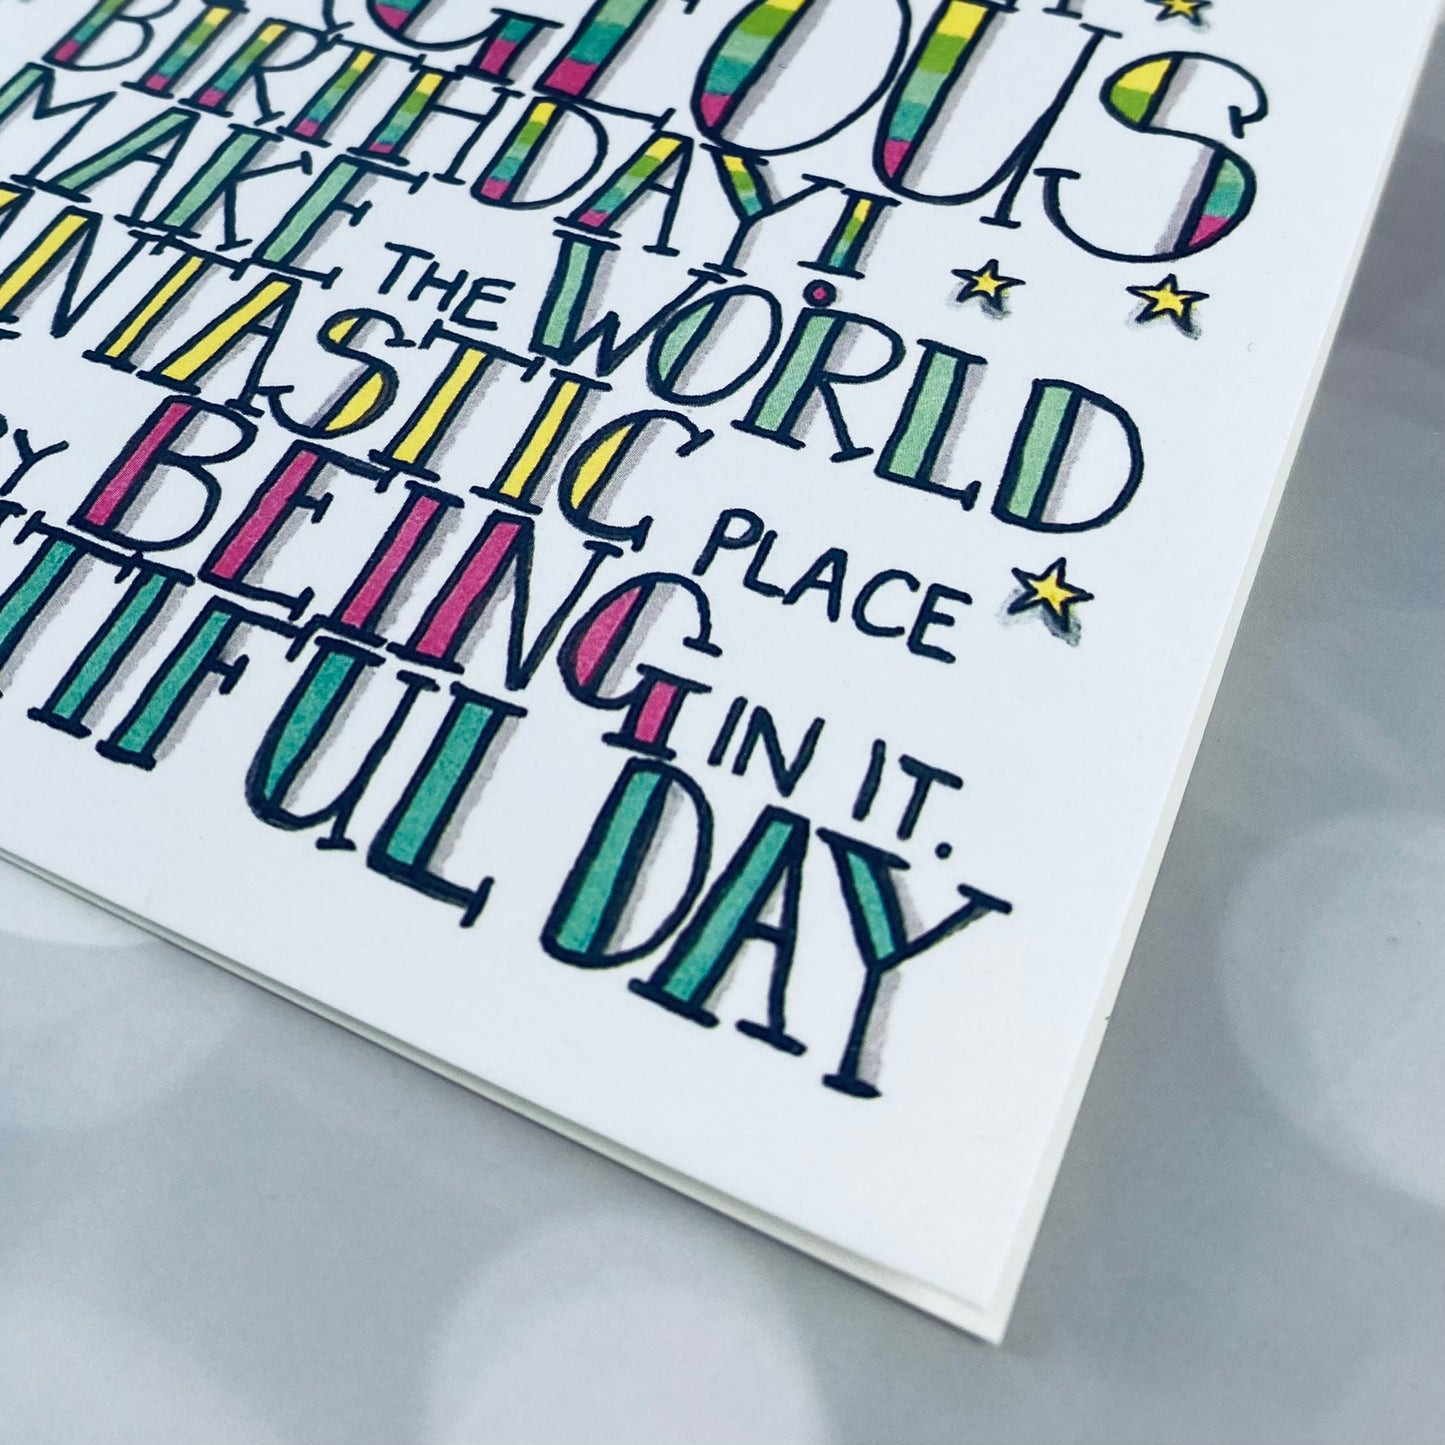 GEOUS
BIRTHDAY!
MAKE THE WORLD
ANTASTIC PLACE
BY BEING IN IT.
TIFUL DAY